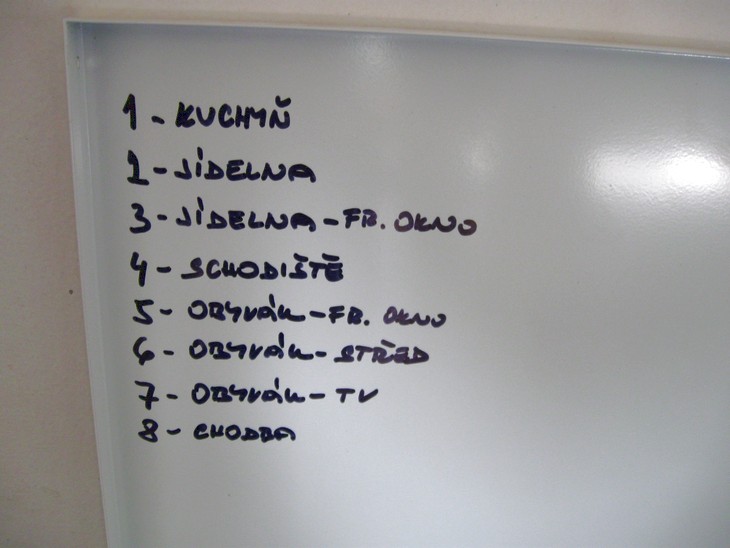 1 - KUCHYŇ
2 - JÍDELNA
3 - JÍDELNA - FR. OKNO
4 - SCHODIŠTĚ
5 - OBYVÁK - FR. OKNO
6 - OBYVÁK - STŘED
7 - OBYVÁK - TV
8 - CHODBA